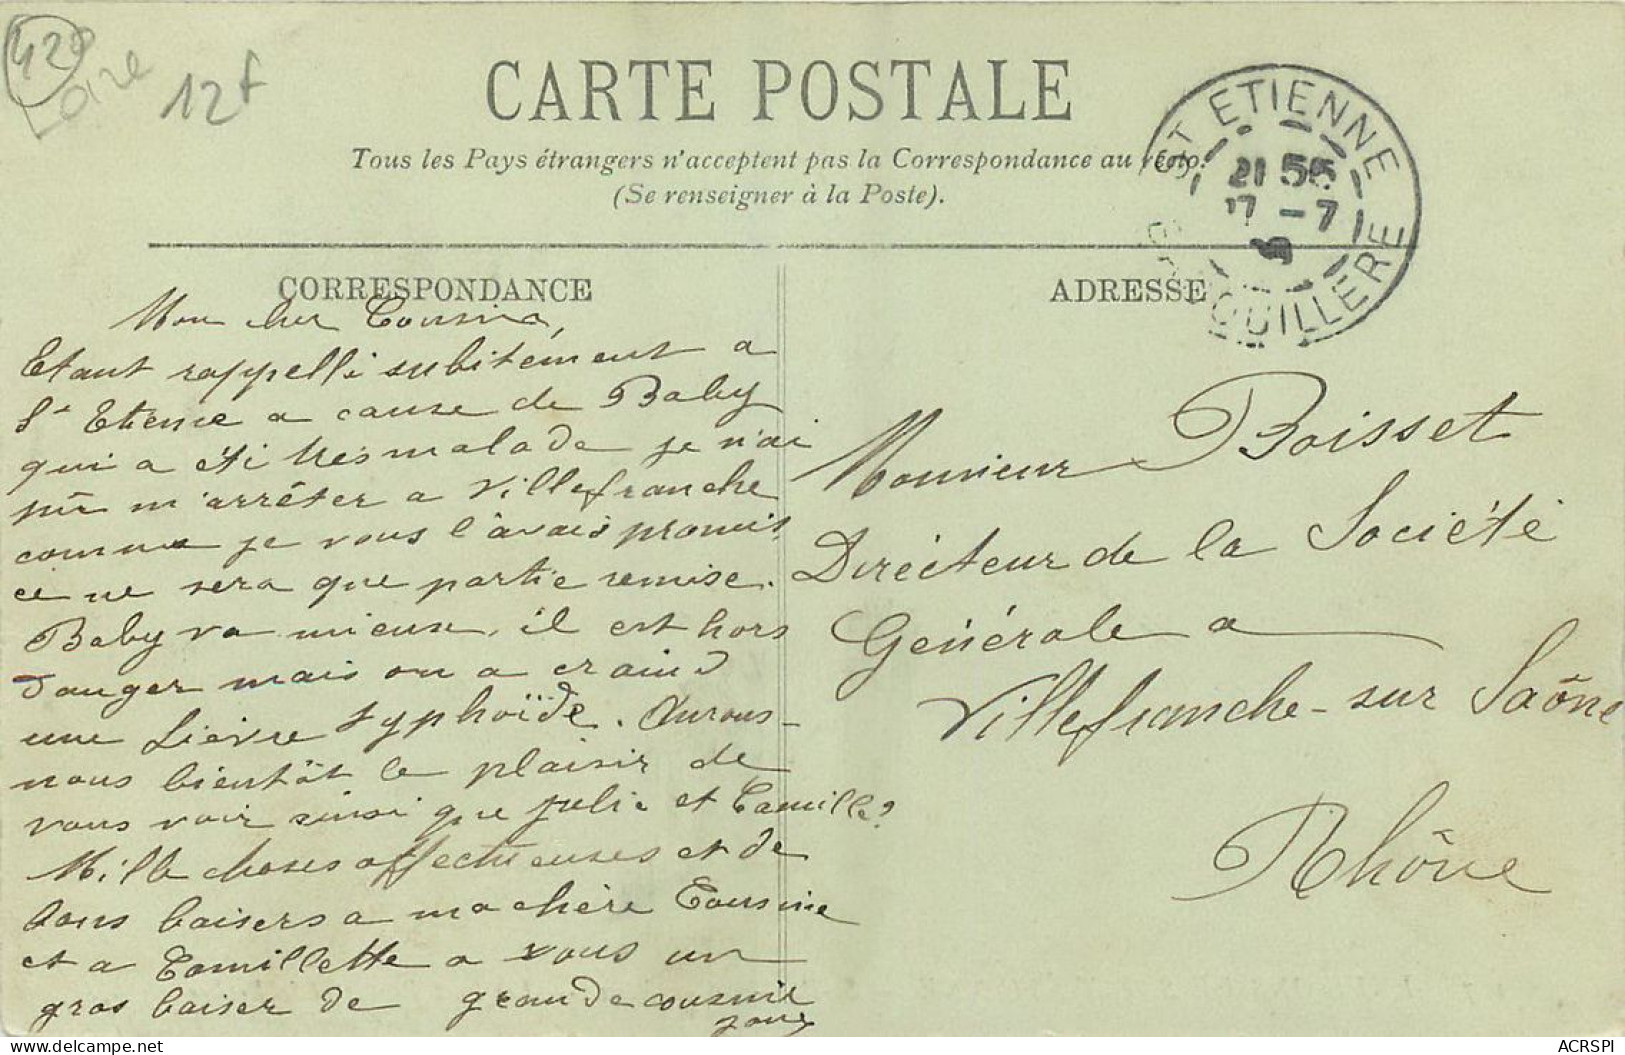 42
Loire
12f
CARTE POSTALE
Tous les Pays étrangers n'acceptent pas la Correspondance au recto.
(Se renseigner à la Poste).
ST ETIENNE
21 55
17 - 7
QUILLERE
CORRESPONDANCE
Mon cher Cousin,
Etant rappellé subitement a
St Etienne a cause de Baby
qui a été très malade je n'ai
pû m'arrêter a Villefranche
comme je vous l'avais promis,
ce ne sera que partie remise.
Baby va mieux, il est hors
danger mais on a craind
une fièvre typhoïde. Aurons-
nous bientôt le plaisir de
vous voir ainsi que Julie et Camille?
Mille choses affectueuses et de
bons baisers a ma chère Cousine
et a Camillette a vous un
gros baiser de grande cousine
ADRESSE
Monsieur Boisset
Directeur de la Société
Générale a
Villefranche-sur Saône
Rhône
www.delcampe.net
ACRSPI